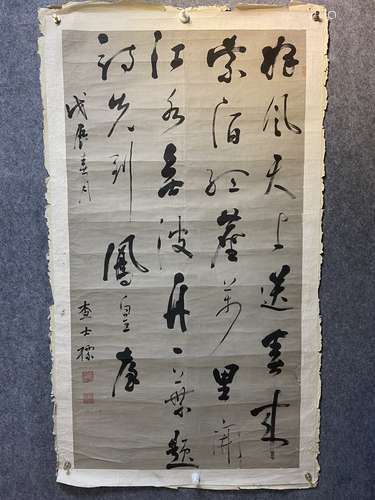 好風天上送春來
紫陌紅塵萬里開
江水無波舟一葉題
詩先到鳳皇臺
戊辰春月
查士標